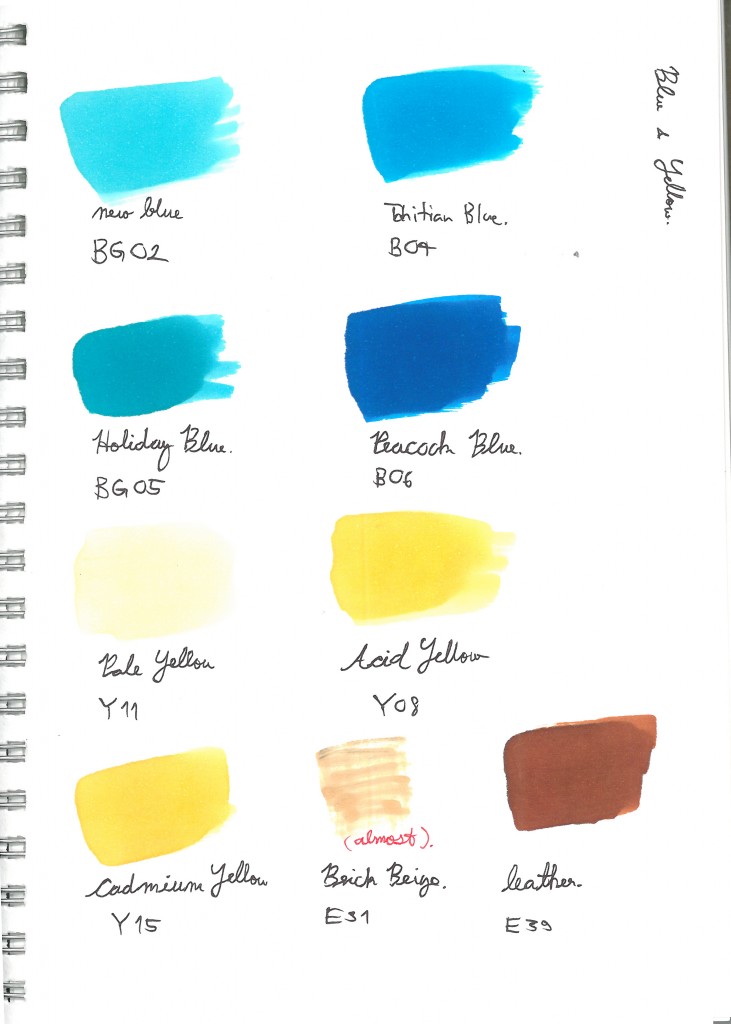 Blue & Yellow.
new blue
BG02
Tahitian Blue.
B04
Holiday Blue.
BG05
Peacock Blue.
B06
Pale Yellow
Y11
Acid Yellow
Y08
Cadmium Yellow
Y15
(almost).
Brick Beige.
E31
leather.
E39